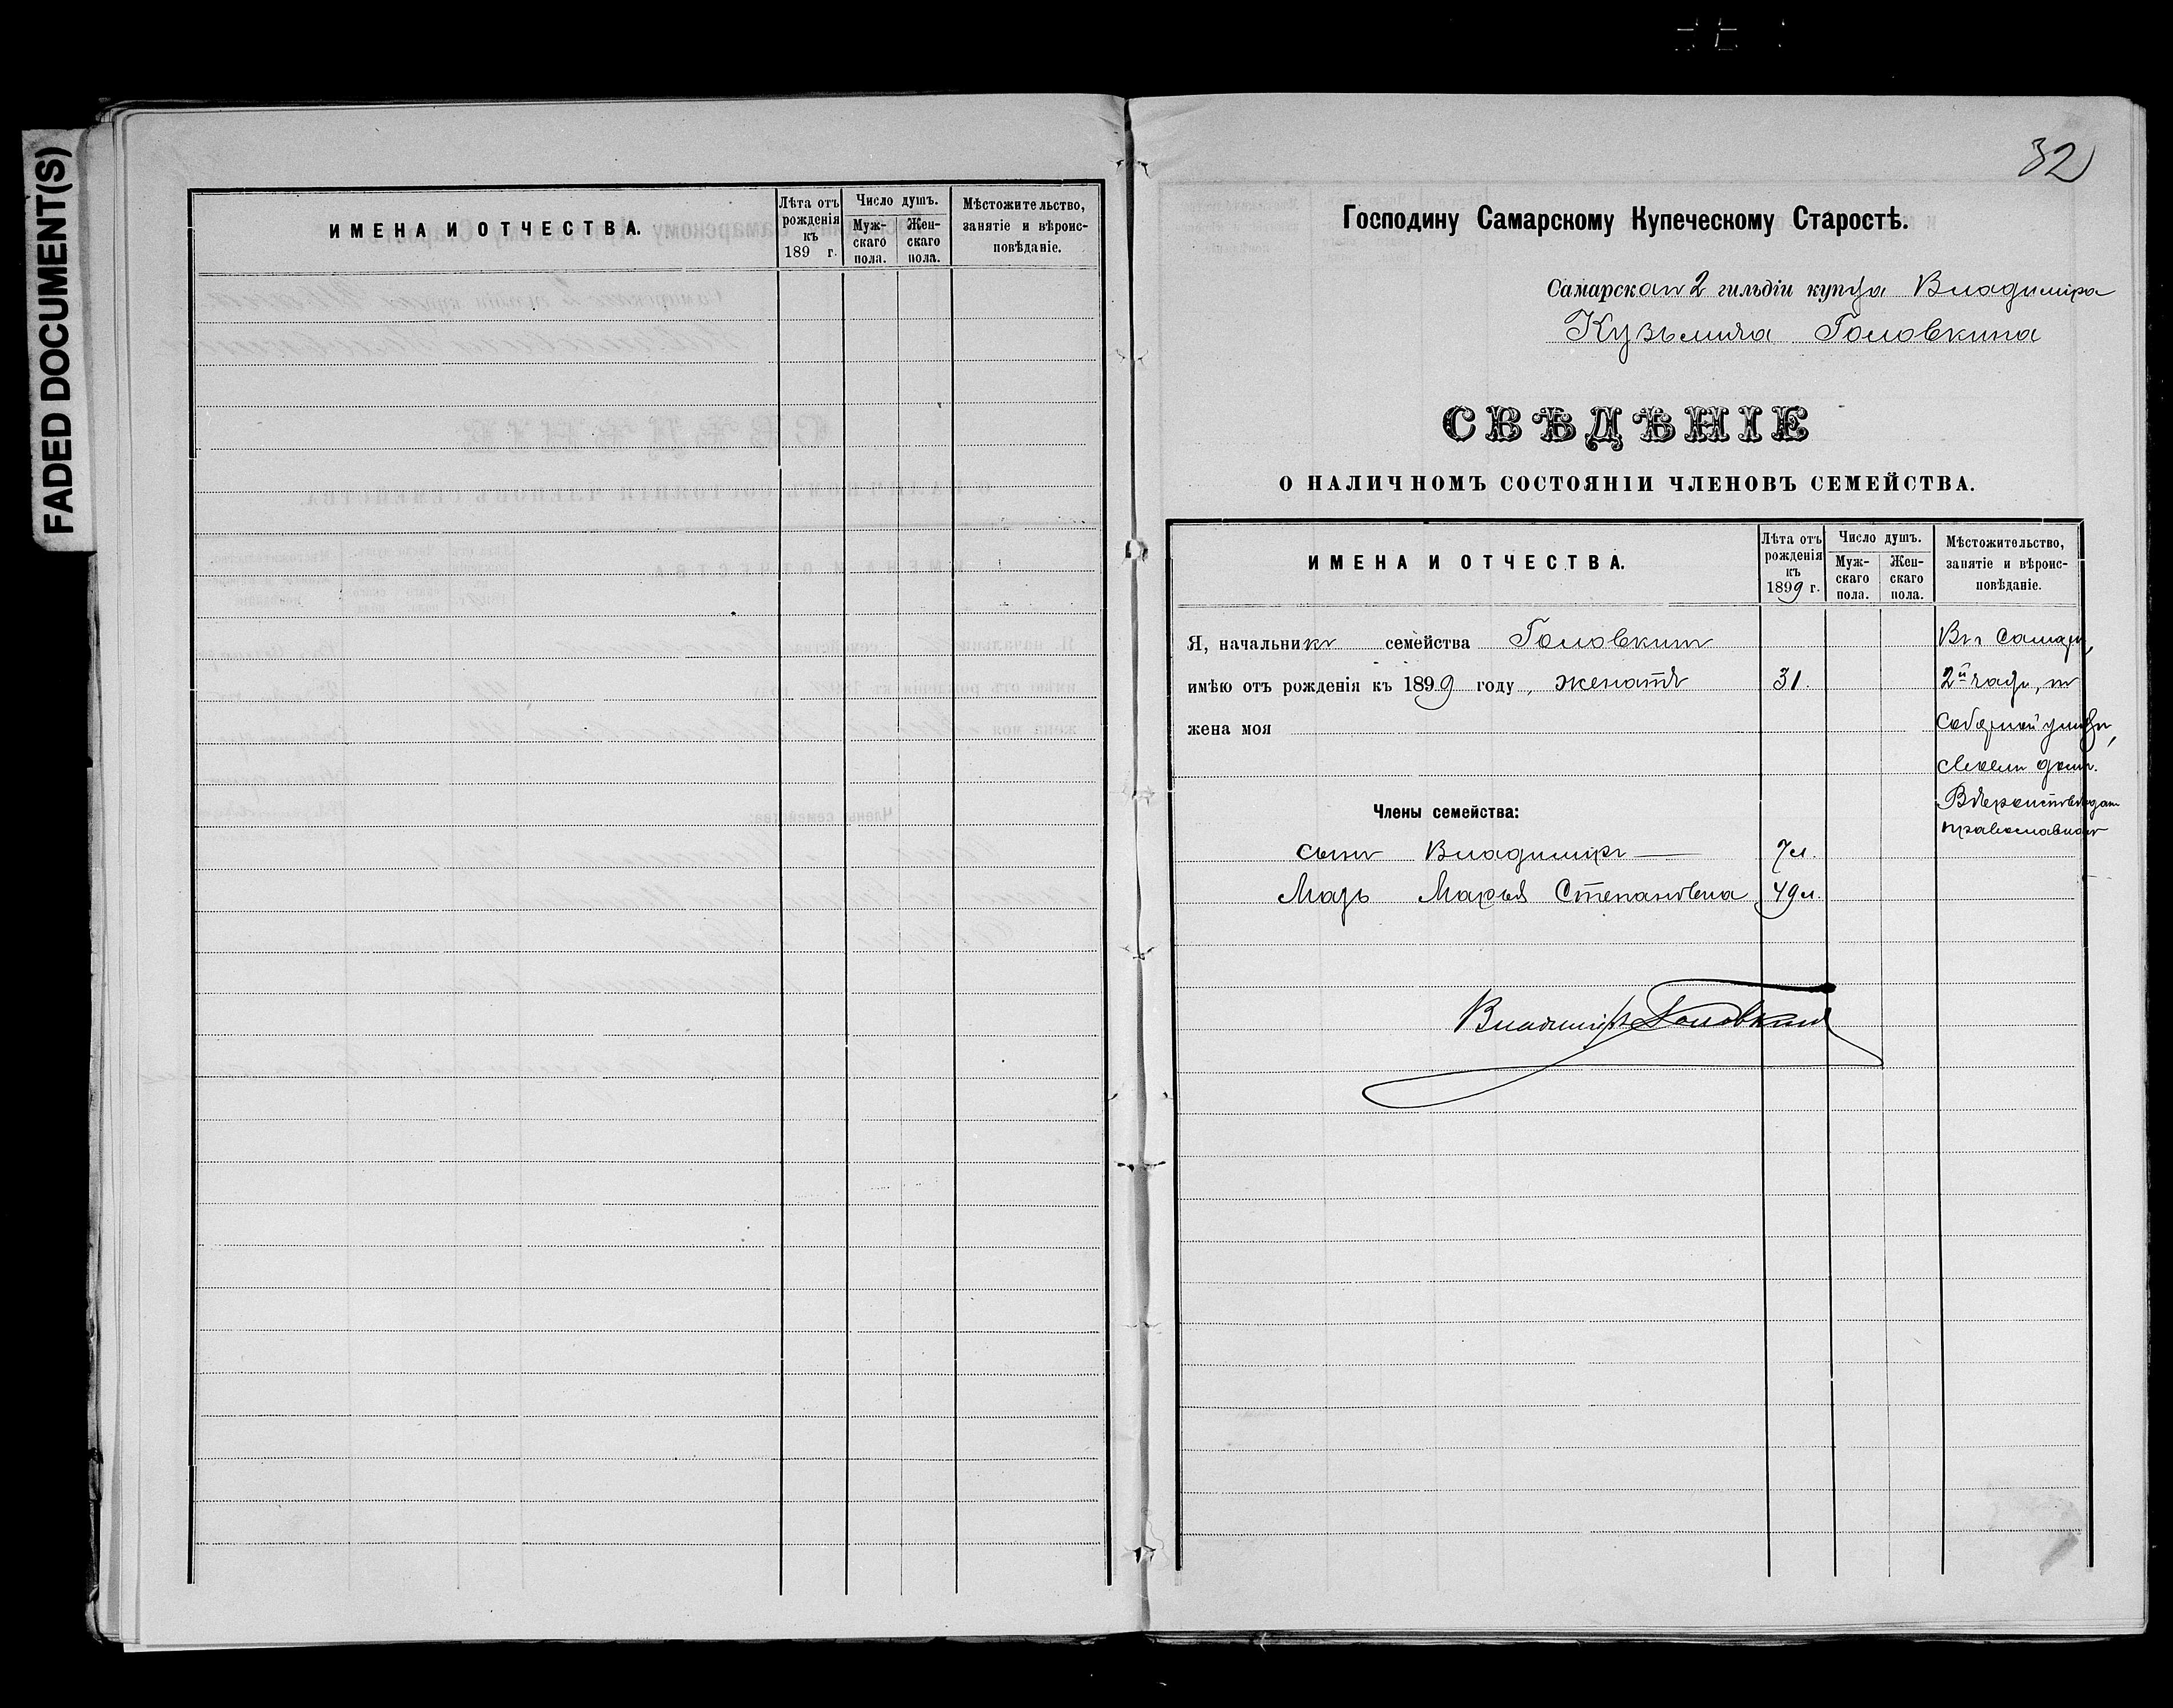 FADED DOCUMENT(S)
ИМЕНА И ОТЧЕСТВА.
Лѣта отъ рожденія къ 189 г.
Число душъ.
Муж- скаго пола.
Жен- скаго пола.
Мѣстожительство, занятіе и вѣроис- повѣданіе.
32
Господину Самарскому Купеческому Старостѣ.
Самарскаго 2 гильдіи купца Владиміра
Кузьмича Головкина
СВѢДѢНІЕ
О НАЛИЧНОМЪ СОСТОЯНІИ ЧЛЕНОВЪ СЕМЕЙСТВА.
ИМЕНА И ОТЧЕСТВА.
Лѣта отъ рожденія къ 1899 г.
Число душъ.
Муж- скаго пола.
Жен- скаго пола.
Мѣстожительство, занятіе и вѣроис- повѣданіе.
Я, начальникъ семейства Головкинъ Въ г. Самарѣ,
имѣю отъ рожденія къ 1899 году, женатъ 31. 2й части, на
жена моя Соборной улицѣ,
своемъ домѣ.
Члены семейства: Вѣроисповѣдан
православнаго
сынъ Владиміръ — 7 л.
Мать Марья Степановна 49 л.
Владиміръ Головкинъ